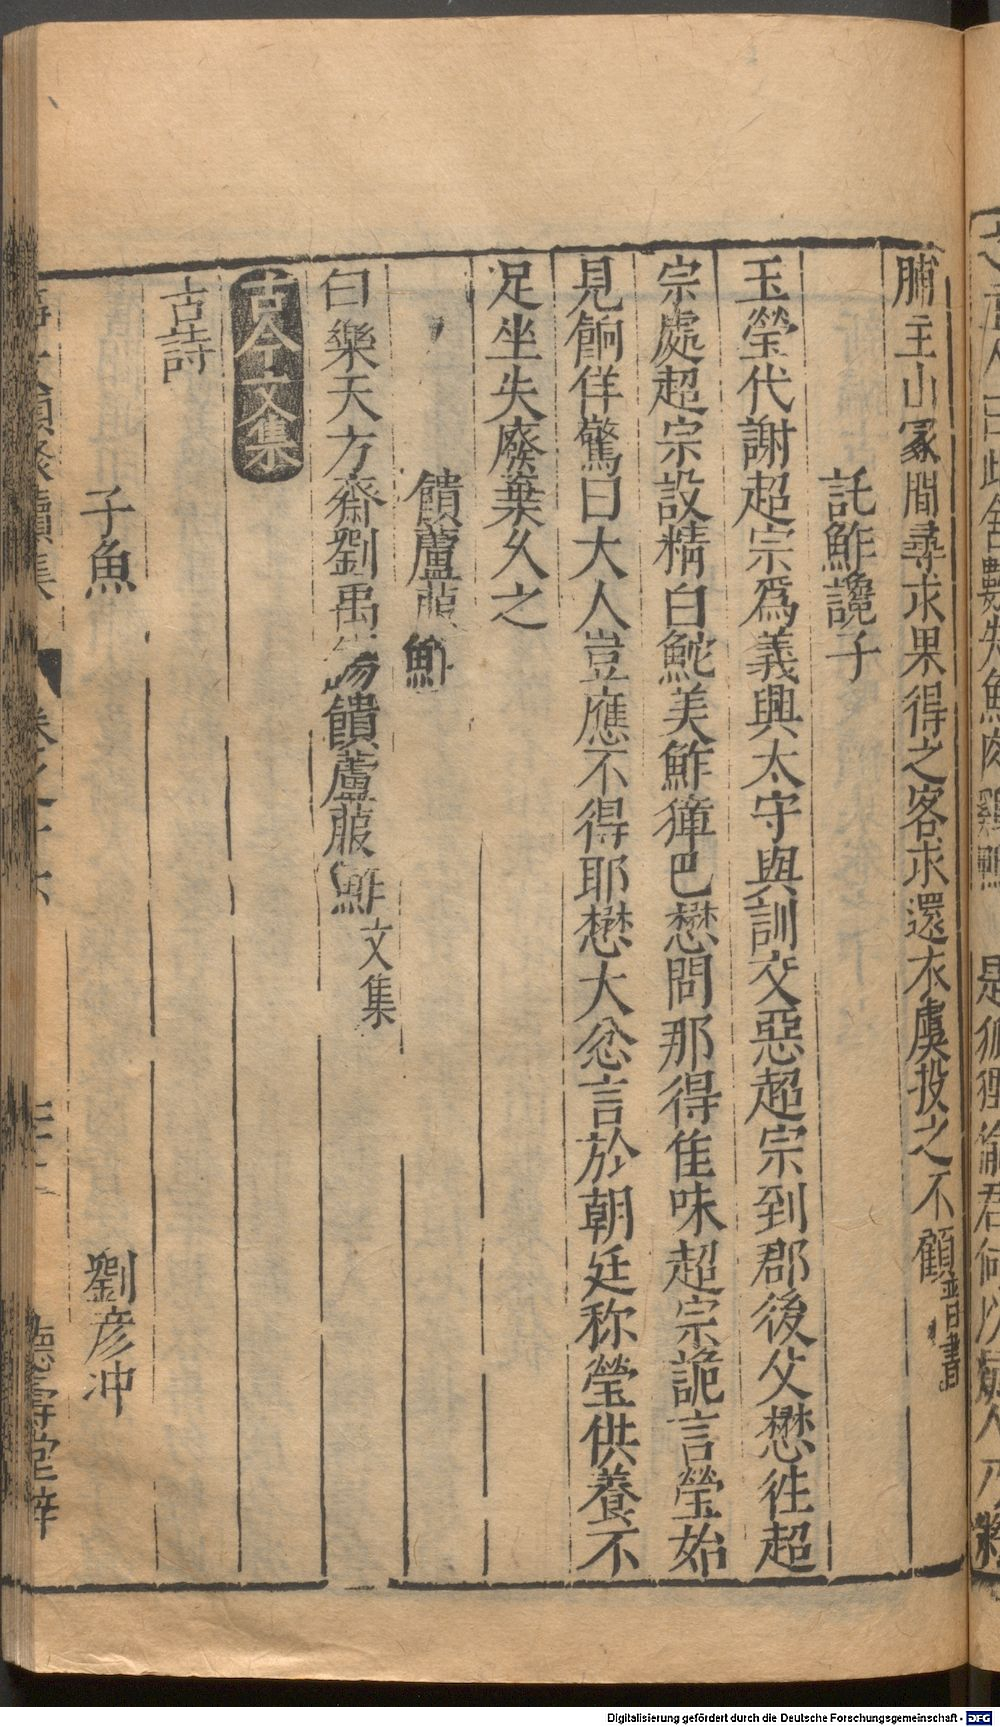 脯主山冢間尋求果得之客求還衣虞投之不顧晉書
託鮓讒子
王瑩代謝超宗爲義興太守與訓交惡超宗到郡後父懋往超
宗處超宗設精白鮀美鮓獐巴懋問那得佳味超宗詭言瑩始
見餉佯驚曰大人豈應不得耶懋大忿言於朝廷称瑩供養不
足坐失廢棄久之
饋蘆菔鮓
白樂天方齋劉禹錫饋蘆菔鮓文集
古今文集
古詩
子魚 劉彦冲
卷之十六 德壽堂梓
Digitalisierung gefördert durch die Deutsche Forschungsgemeinschaft - DFG